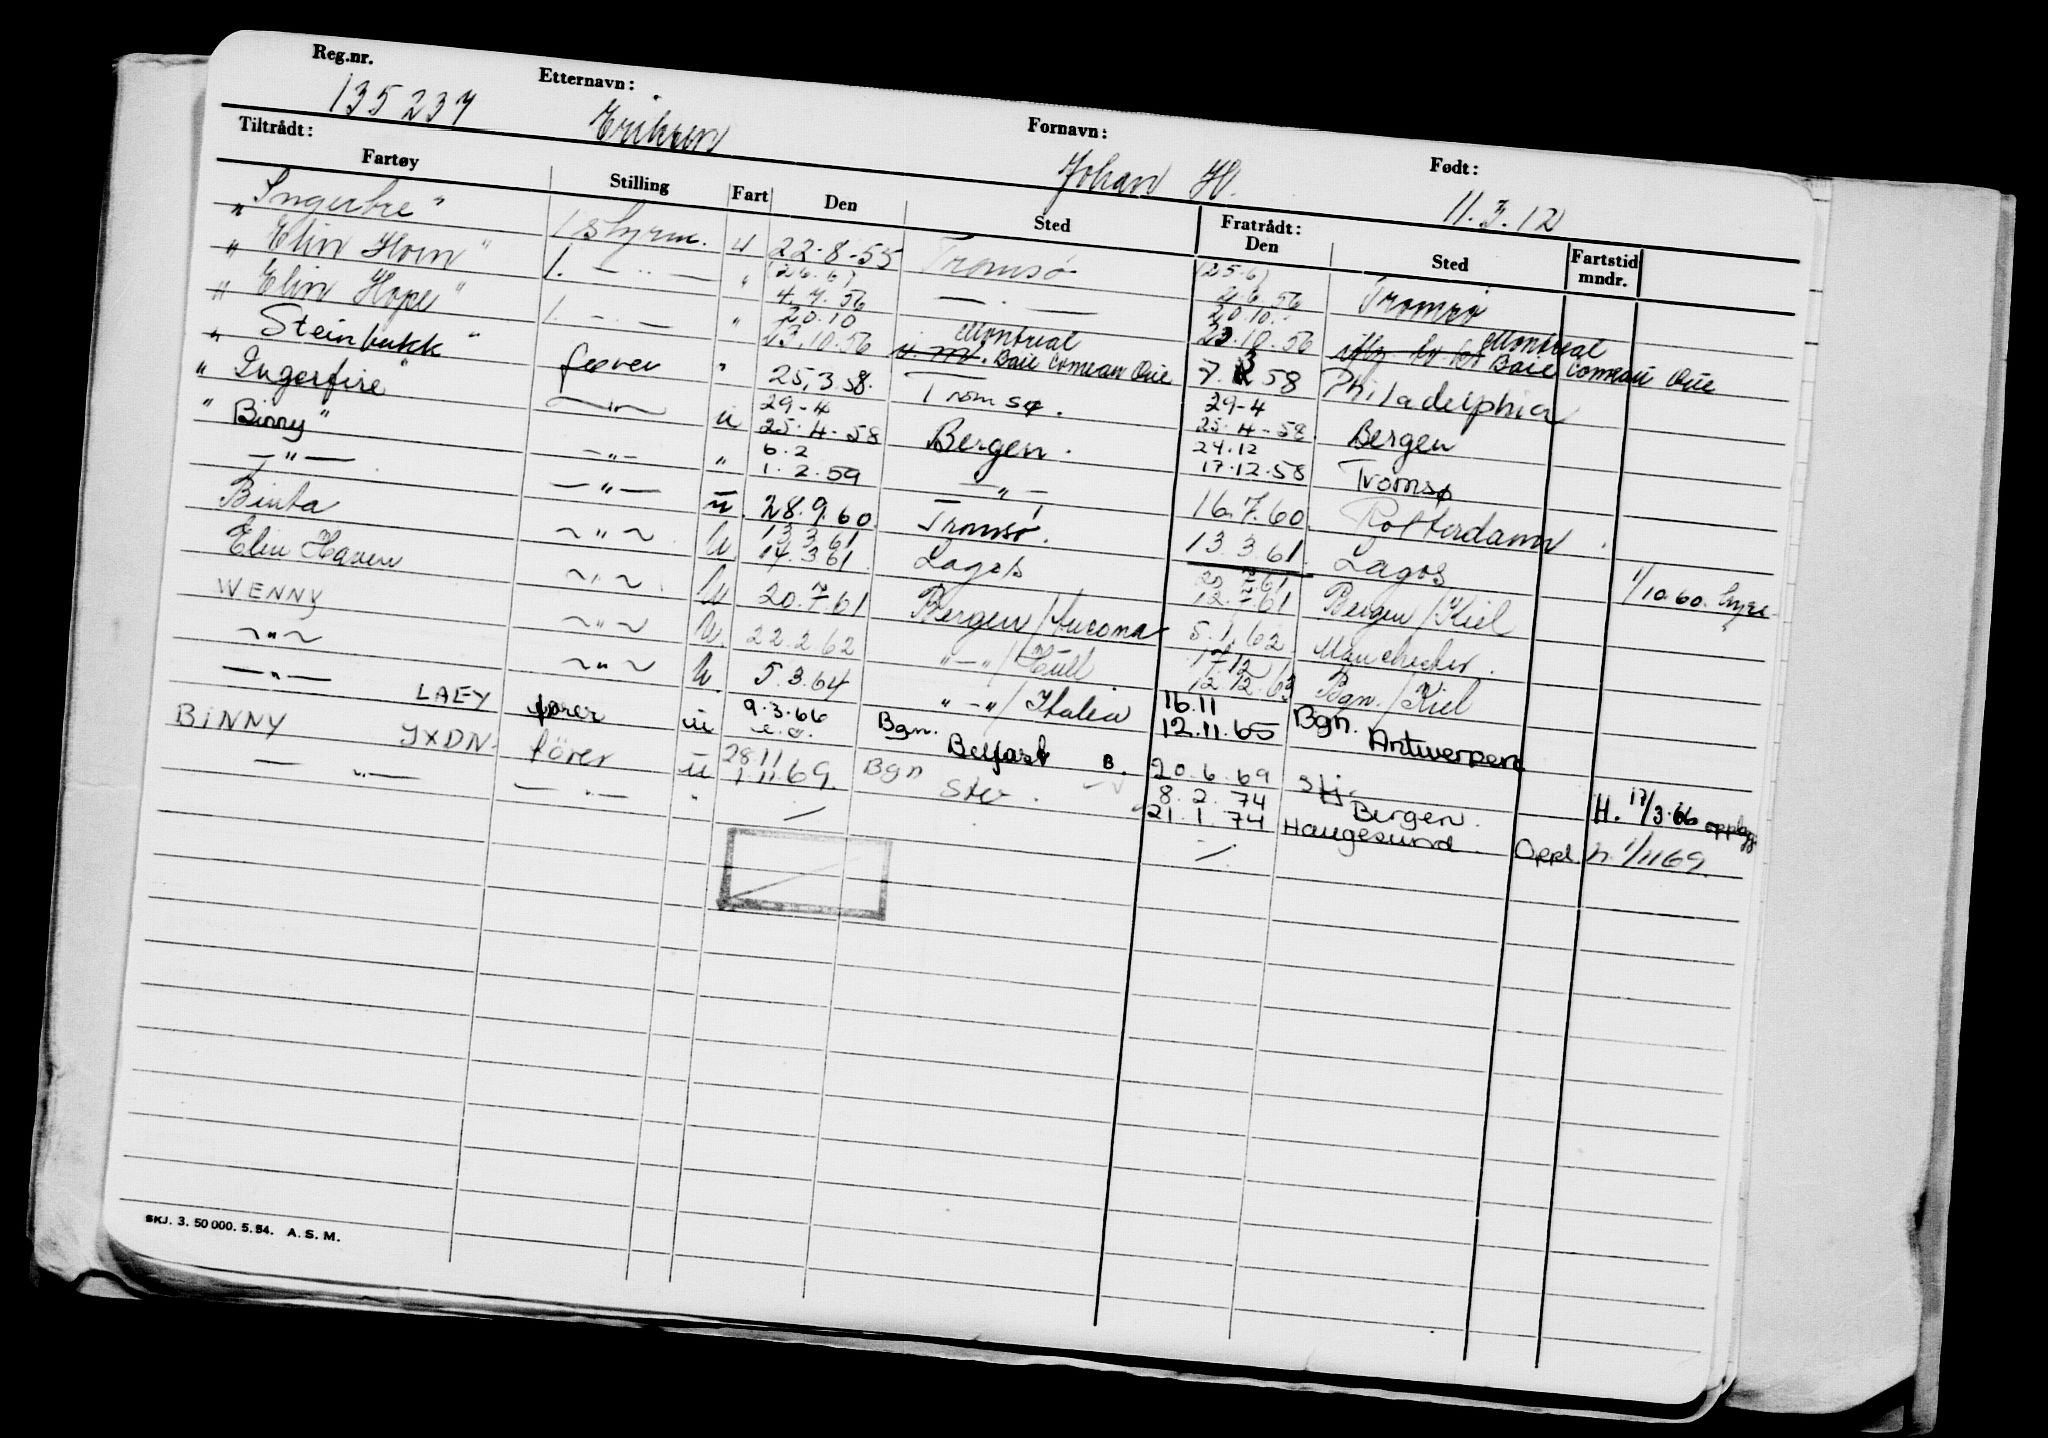 Reg.nr. Etternavn: Fornavn: Født:
135237 Eriksen Johan H. 11.3.12
Tiltrådt: Fratrådt:
Fartøy Stilling Fart Den Sted Den Sted Fartstid mndr.
" Ingerbre " 1 styrm. u 22-8-55 Tromsø (25.6) 2.6.56 Tromsø
" Elin Horn " 1. — " — " (26.6) 4.7.56 — " — 20.10. 23.10.56 Montreal Baie Comeau Que
" Elin Hope " 1. — " — " 20.10 23.10.56 Montreal Baie Comeau Que 7. 58 Philadelphia
" Steinbukk " fører " 25.3 58. Tromsø. 29-4 25.4-58. Bergen
" Ingerfire " — " — u 29-4 25.4-58 Bergen. 24.12 17.12.58 Tromsø
" Binny " — " — " 6.2 1.2.59 — " — 16.7.60 Rotterdam.
— " — — " — u. 28.9.60 Tromsø. 13.3.61 Lagos 1/10.60.
Binta ~ " ~ U 13.3.61 14.3.61 Lagos 20.7.61 12.7.61 Bergen/Kiel
Elin Haven ~ " ~ U 20.7.61 Bergen/Ancona 5.1.62 Manchester.
WENNY ~ " ~ U. 22.2.62 " — "/Hull 17.12 12.12.63 Bgn./Kiel
~ " ~ ~ " ~ U. 5.3.64 " — "/Italia 16.11 12.11.65 Bgn. Antwerpen
— " — LAEY fører u 9.3.66 Bgn. Belfast B. 20.6.69 Stj. H. 17/3.66 opplegg
BINNY JXDN fører u 28.11 1.11.69. Bgn Stv. 8.2.74 21.1.74 Bergen. Haugesund. Oppl. h. 1/11 69.
— " — — " — "
SKJ. 3. 50 000. 5.54. A. S. M.